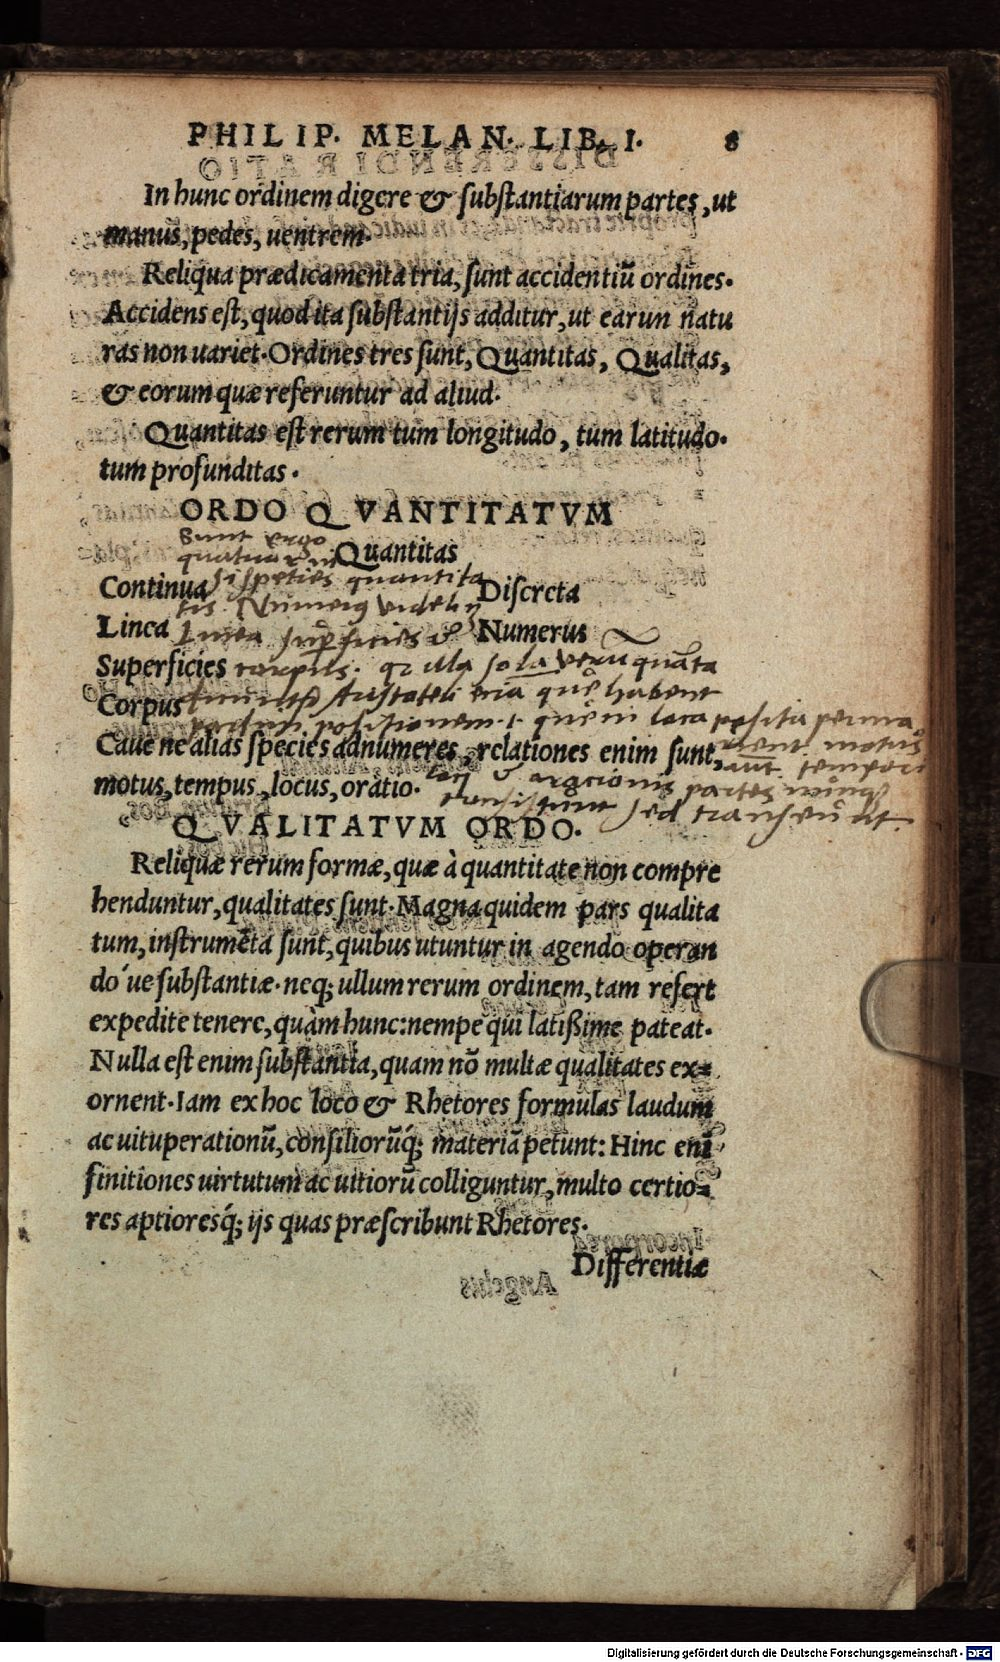 PHILIP. MELAN. LIB. I. 8
In hunc ordinem digere & substantiarum partes, ut
manus, pedes, uentrem.
Reliqua prædicamenta tria, sunt accidentiũ ordines.
Accidens est, quod ita substantijs additur, ut earun natu
ras non uariet. Ordines tres sunt, Quantitas, Qualitas,
& eorum quæ referuntur ad aliud.
Quantitas est rerum tum longitudo, tum latitudo.
tum profunditas.
ORDO QVANTITATVM
Sunt ergo
quatuor
Quantitas
species quantita
Continua Discreta
tis. Numerus videli
Linea Numerus
Linea superficies &
Superficies corpus. illa sola quãta
Corpus
habent
positionem. loca posita perma
Caue ne alias species adnumeres, relationes enim sunt,
nent motus
aut tempori
motus, tempus, locus, oratio.
orationis partes
sed transeũt.
QVALITATVM ORDO.
Reliquæ rerum formæ, quæ à quantitate non compre
henduntur, qualitates sunt. Magna quidem pars qualita
tum, instrumẽta sunt, quibus utuntur in agendo operan
dó ue substantiæ. neq; ullum rerum ordinem, tam refert
expedite tenere, quàm hunc: nempe qui latißime pateat.
Nulla est enim substantia, quam nõ multæ qualitates ex=
ornent. Iam ex hoc loco & Rhetores formulas laudum
ac uituperationũ, consiliorũq́; materiã petunt: Hinc enĩ
finitiones uirtutum ac uitiorũ colliguntur, multo certio=
res aptioresq́; ijs quas præscribunt Rhetores.
Differentiæ
Digitalisierung gefördert durch die Deutsche Forschungsgemeinschaft - DFG